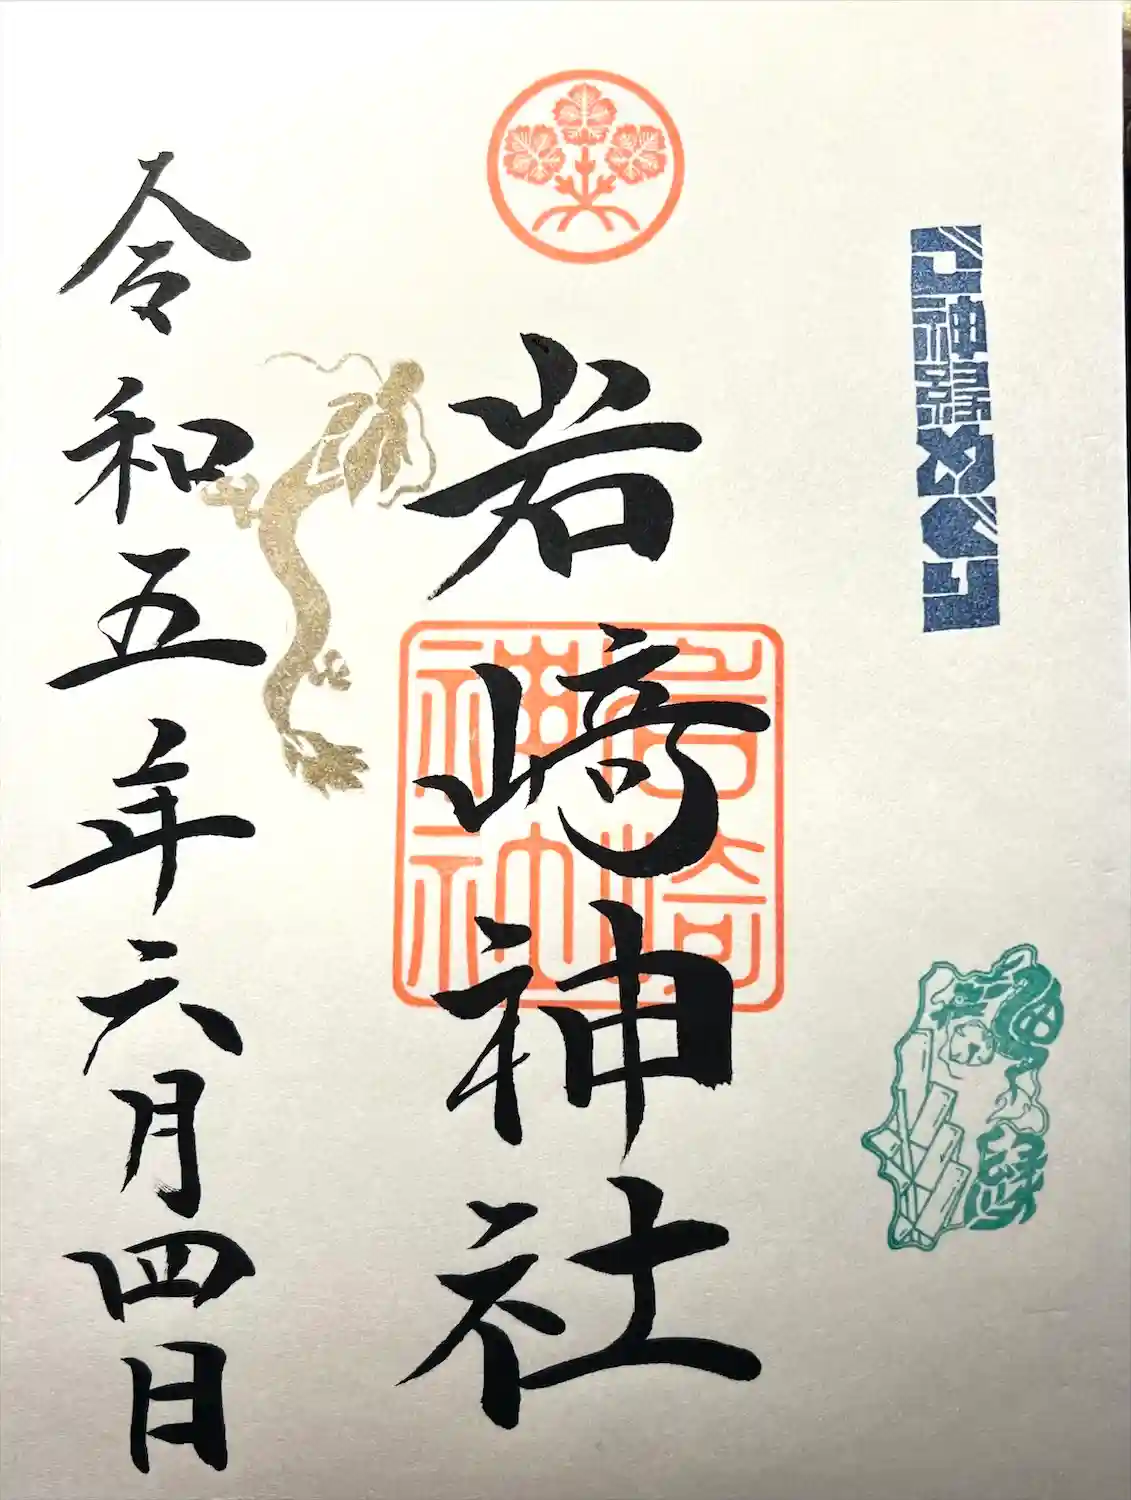 岩崎神社
岩崎神社
令和五年六月四日